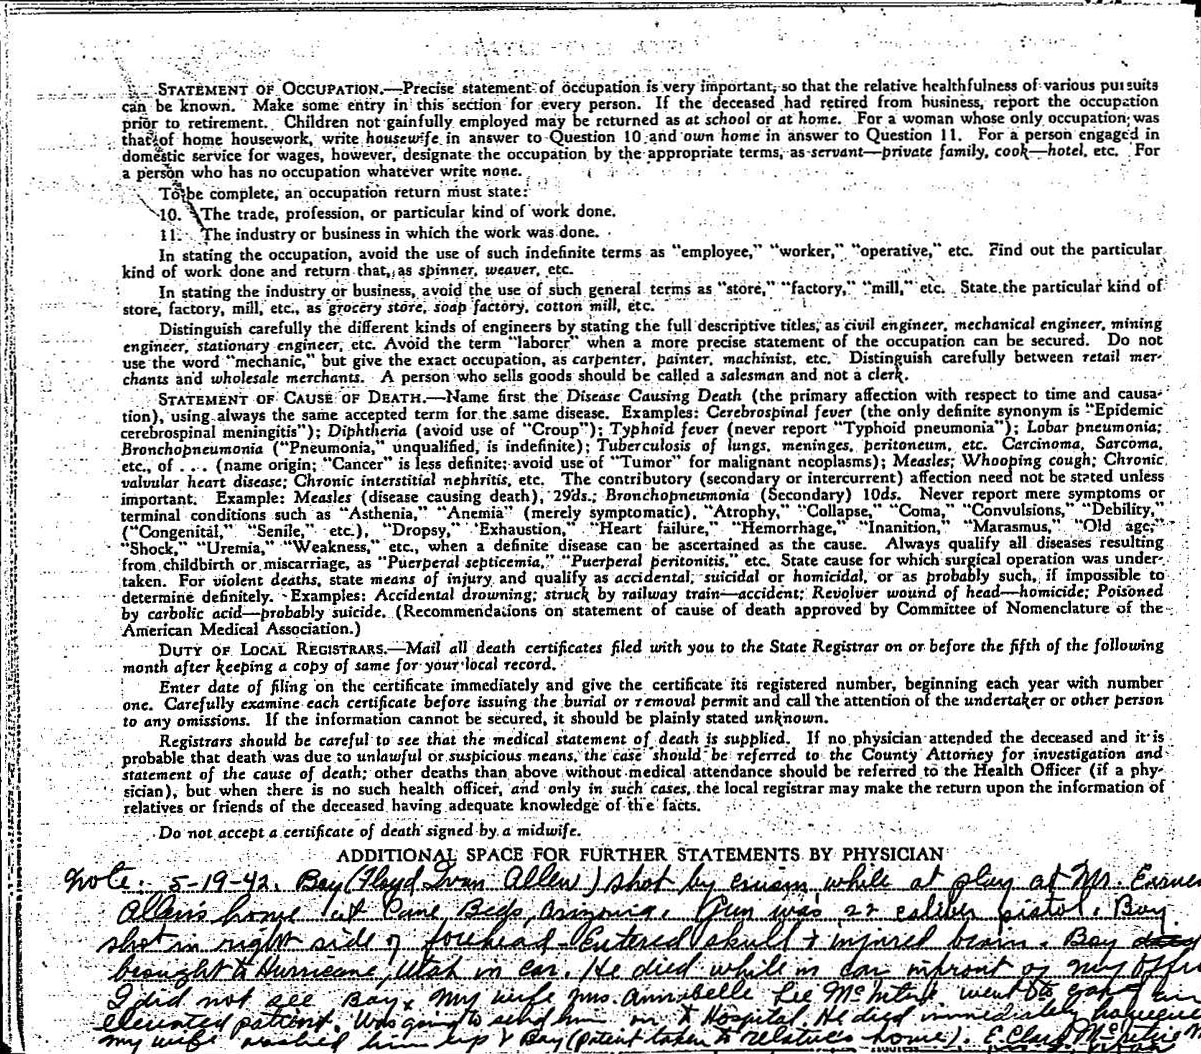 STATEMENT OF OCCUPATION.—Precise statement of occupation is very important, so that the relative healthfulness of various pursuits
can be known. Make some entry in this section for every person. If the deceased had retired from business, report the occupation
prior to retirement. Children not gainfully employed may be returned as at school or at home. For a woman whose only occupation was
that of home housework, write housewife in answer to Question 10 and own home in answer to Question 11. For a person engaged in
domestic service for wages, however, designate the occupation by the appropriate terms, as servant—private family, cook—hotel, etc. For
a person who has no occupation whatever write none.
To be complete, an occupation return must state:
10. The trade, profession, or particular kind of work done.
11. The industry or business in which the work was done.
In stating the occupation, avoid the use of such indefinite terms as "employee," "worker," "operative," etc. Find out the particular
kind of work done and return that, as spinner, weaver, etc.
In stating the industry or business, avoid the use of such general terms as "store," "factory," "mill," etc. State the particular kind of
store, factory, mill, etc., as grocery store, soap factory, cotton mill, etc.
Distinguish carefully the different kinds of engineers by stating the full descriptive titles, as civil engineer, mechanical engineer, mining
engineer, stationary engineer, etc. Avoid the term "laborer" when a more precise statement of the occupation can be secured. Do not
use the word "mechanic," but give the exact occupation, as carpenter, painter, machinist, etc. Distinguish carefully between retail mer-
chants and wholesale merchants. A person who sells goods should be called a salesman and not a clerk.
STATEMENT OF CAUSE OF DEATH.—Name first the Disease Causing Death (the primary affection with respect to time and causa-
tion), using always the same accepted term for the same disease. Examples: Cerebrospinal fever (the only definite synonym is "Epidemic
cerebrospinal meningitis"); Diphtheria (avoid use of "Croup"); Typhoid fever (never report "Typhoid pneumonia"); Lobar pneumonia;
Bronchopneumonia ("Pneumonia," unqualified, is indefinite); Tuberculosis of lungs, meninges, peritoneum, etc. Carcinoma, Sarcoma,
etc., of . . . (name origin; "Cancer" is less definite; avoid use of "Tumor" for malignant neoplasms); Measles; Whooping cough; Chronic
valvular heart disease; Chronic interstitial nephritis, etc. The contributory (secondary or intercurrent) affection need not be stated unless
important. Example: Measles (disease causing death), 29ds.; Bronchopneumonia (Secondary) 10ds. Never report mere symptoms or
terminal conditions such as "Asthenia," "Anemia" (merely symptomatic), "Atrophy," "Collapse," "Coma," "Convulsions," "Debility,"
("Congenital," "Senile," etc.), "Dropsy," "Exhaustion," "Heart failure," "Hemorrhage," "Inanition," "Marasmus," "Old age,"
"Shock," "Uremia," "Weakness," etc., when a definite disease can be ascertained as the cause. Always qualify all diseases resulting
from childbirth or miscarriage, as "Puerperal septicemia," "Puerperal peritonitis," etc. State cause for which surgical operation was under-
taken. For violent deaths, state means of injury and qualify as accidental, suicidal or homicidal, or as probably such, if impossible to
determine definitely. Examples: Accidental drowning; struck by railway train—accident; Revolver wound of head—homicide; Poisoned
by carbolic acid—probably suicide. (Recommendations on statement of cause of death approved by Committee of Nomenclature of the
American Medical Association.)
DUTY OF LOCAL REGISTRARS.—Mail all death certificates filed with you to the State Registrar on or before the fifth of the following
month after keeping a copy of same for your local record.
Enter date of filing on the certificate immediately and give the certificate its registered number, beginning each year with number
one. Carefully examine each certificate before issuing the burial or removal permit and call the attention of the undertaker or other person
to any omissions. If the information cannot be secured, it should be plainly stated unknown.
Registrars should be careful to see that the medical statement of death is supplied. If no physician attended the deceased and it is
probable that death was due to unlawful or suspicious means, the case should be referred to the County Attorney for investigation and
statement of the cause of death; other deaths than above without medical attendance should be referred to the Health Officer (if a phy-
sician), but when there is no such health officer, and only in such cases, the local registrar may make the return upon the information of
relatives or friends of the deceased having adequate knowledge of the facts.
Do not accept a certificate of death signed by a midwife.
ADDITIONAL SPACE FOR FURTHER STATEMENTS BY PHYSICIAN
Note. 5-19-42. Boy (Floyd Ivan Allen) shot by cousin while at play at Mr.
Allen's home at Cane Beds, Arizona. Gun was 22 caliber pistol. Boy
shot in right side of forehead - Entered skull + injured brain. Boy
brought to Hurricane, Utah in car. He died while in car infront of my
I did not see Boy. My wife Mrs. Annabelle Lee went to
patient. Was going to send him on to Hospital. He died immediately
my wife washed him up & Boy (patient taken to relatives home).